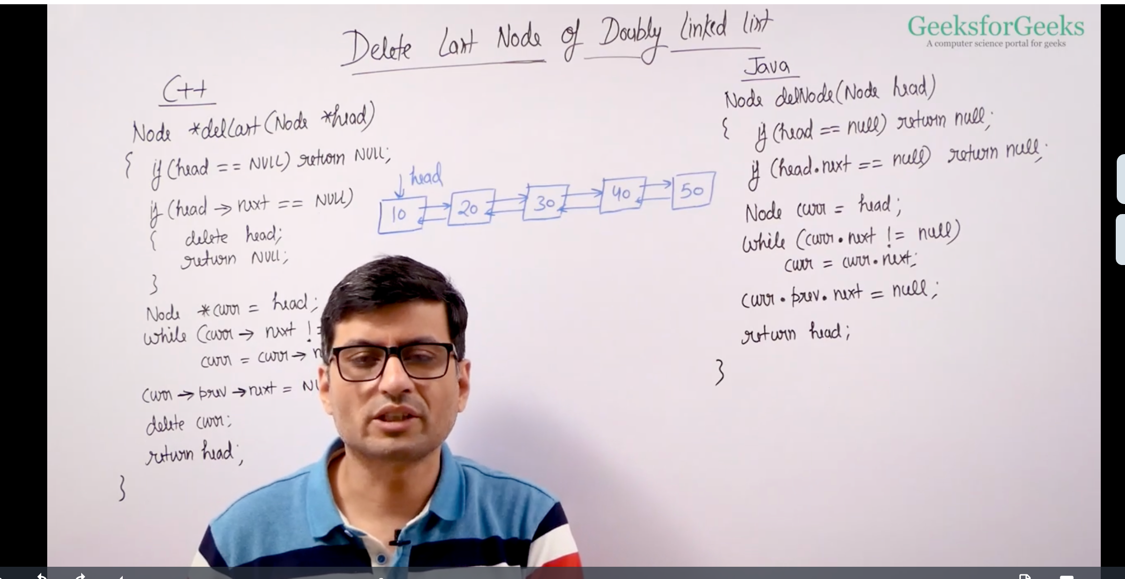 GeeksforGeeks
A computer science portal for geeks
Delete Last Node of Doubly linked list
C++
Node *delLast(Node *head)
{ if (head == NULL) return NULL;
if (head → next == NULL)
{ delete head;
return NULL;
}
Node *curr = head;
while (curr → next !=
curr = curr → n
curr → prev → next = NU
delete curr;
return head;
}
head
10 20 30 40 50
Java
Node delNode(Node head)
{ if (head == null) return null;
if (head.next == null) return null;
Node curr = head;
while (curr.next != null)
curr = curr.next;
curr.prev.next = null;
return head;
}